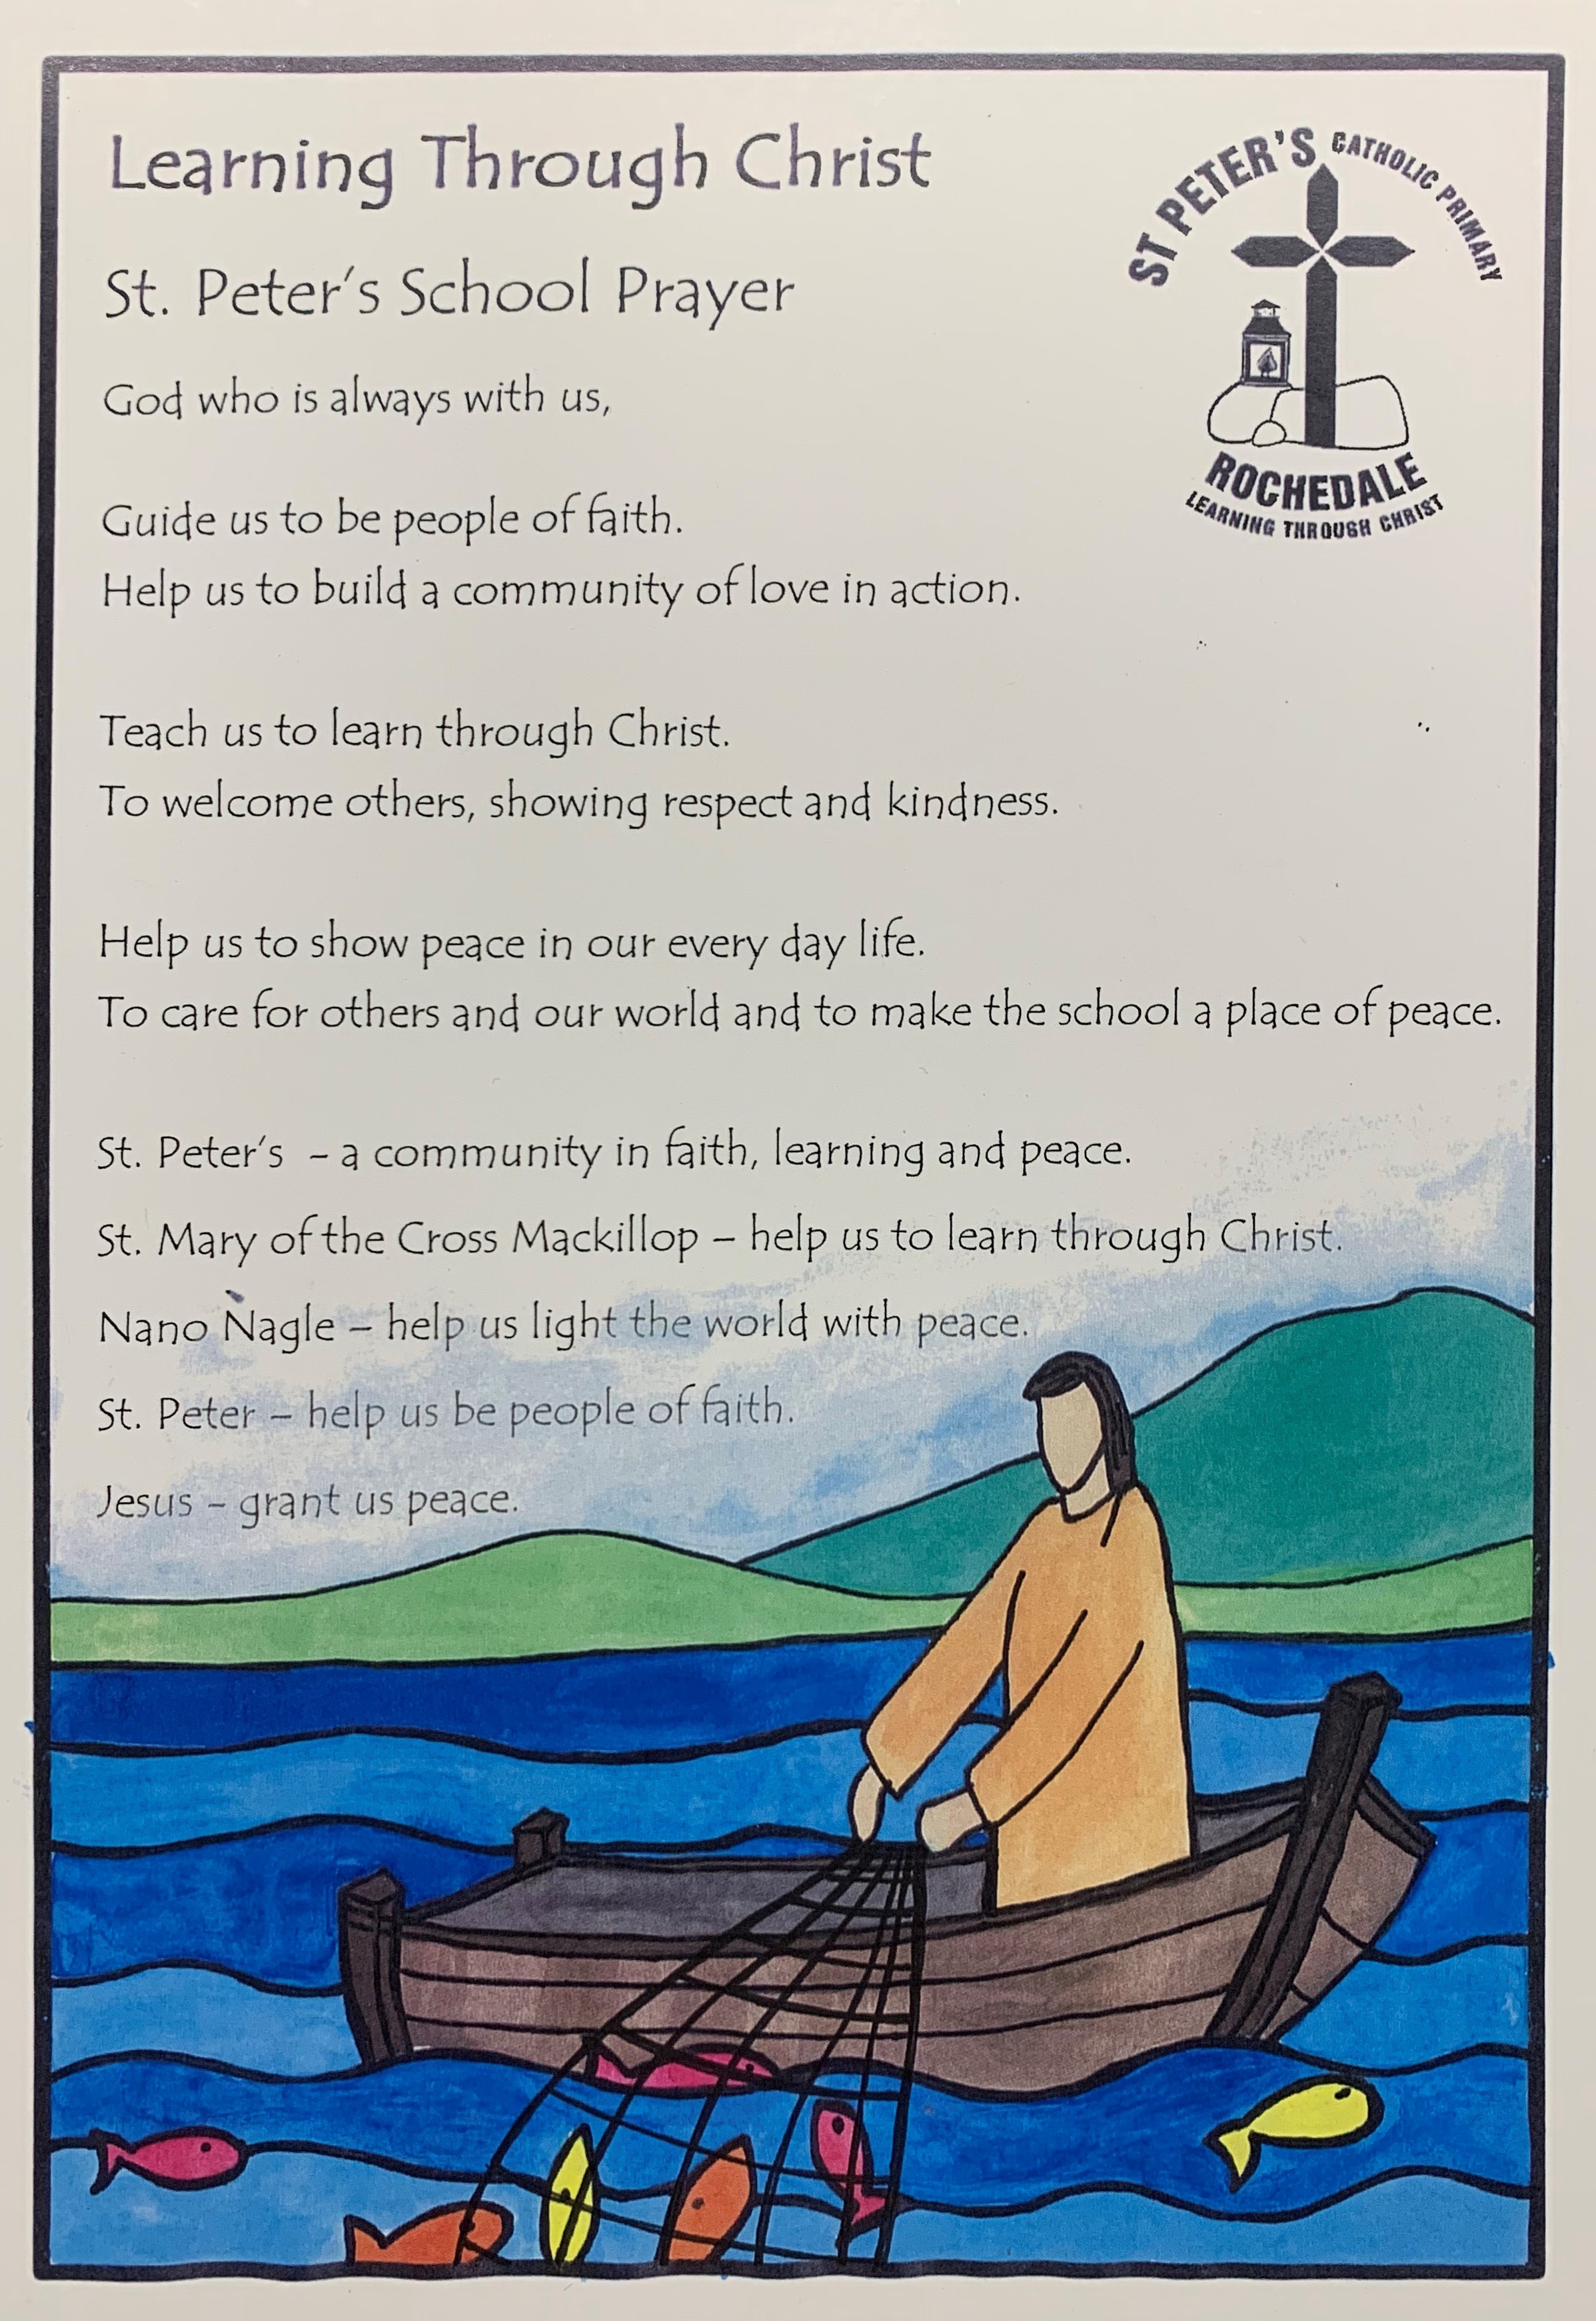 Learning Through Christ
St. Peter's School Prayer
ST PETER'S CATHOLIC PRIMARY
ROCHEDALE
LEARNING THROUGH CHRIST
God who is always with us,
Guide us to be people of faith.
Help us to build a community of love in action.
Teach us to learn through Christ.
To welcome others, showing respect and kindness.
Help us to show peace in our every day life.
To care for others and our world and to make the school a place of peace.
St. Peter's – a community in faith, learning and peace.
St. Mary of the Cross Mackillop – help us to learn through Christ.
Nano Nagle – help us light the world with peace.
St. Peter – help us be people of faith.
Jesus – grant us peace.